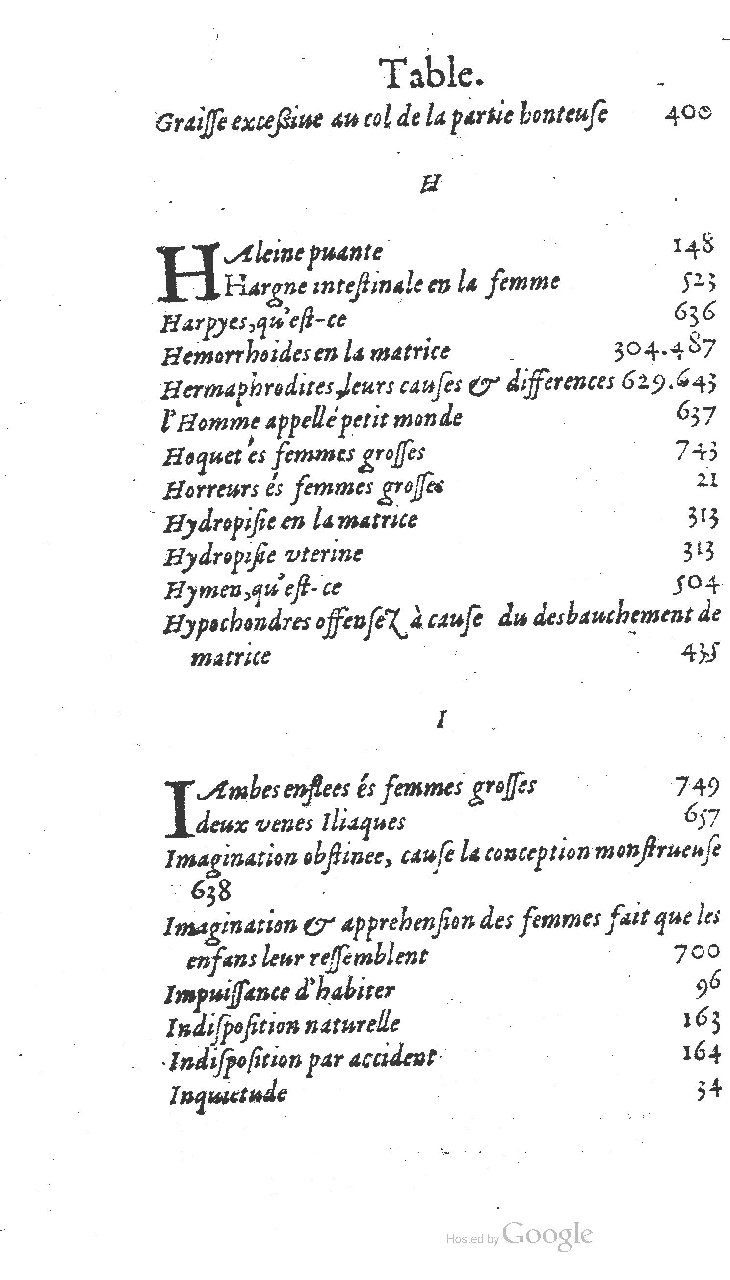 Table.
Graiſſe exceſsiue au col de la partie honteuſe 400
H
HAleine puante 148
Hargne inteſtinale en la femme 523
Harpyes, qu'eſt-ce 636
Hemorrhoides en la matrice 304.487
Hermaphrodites, leurs cauſes & differences 629.643
l'Homme appellé petit monde 637
Hoquet és femmes groſſes 743
Horreurs és femmes groſſes 21
Hydropiſie en la matrice 313
Hydropiſie vterine 313
Hymen, qu'eſt-ce 504
Hypochondres offenſez à cauſe du desbauchement de
matrice 435
I
IAmbes enflees és femmes groſſes 749
deux venes Iliaques 657
Imagination obſtinee, cauſe la conception monſtrueuſe
638
Imagination & apprehenſion des femmes fait que les
enfans leur reſſemblent 700
Impuiſſance d'habiter 96
Indiſpoſition naturelle 163
Indiſpoſition par accident 164
Inquietude 34
Hosted by Google